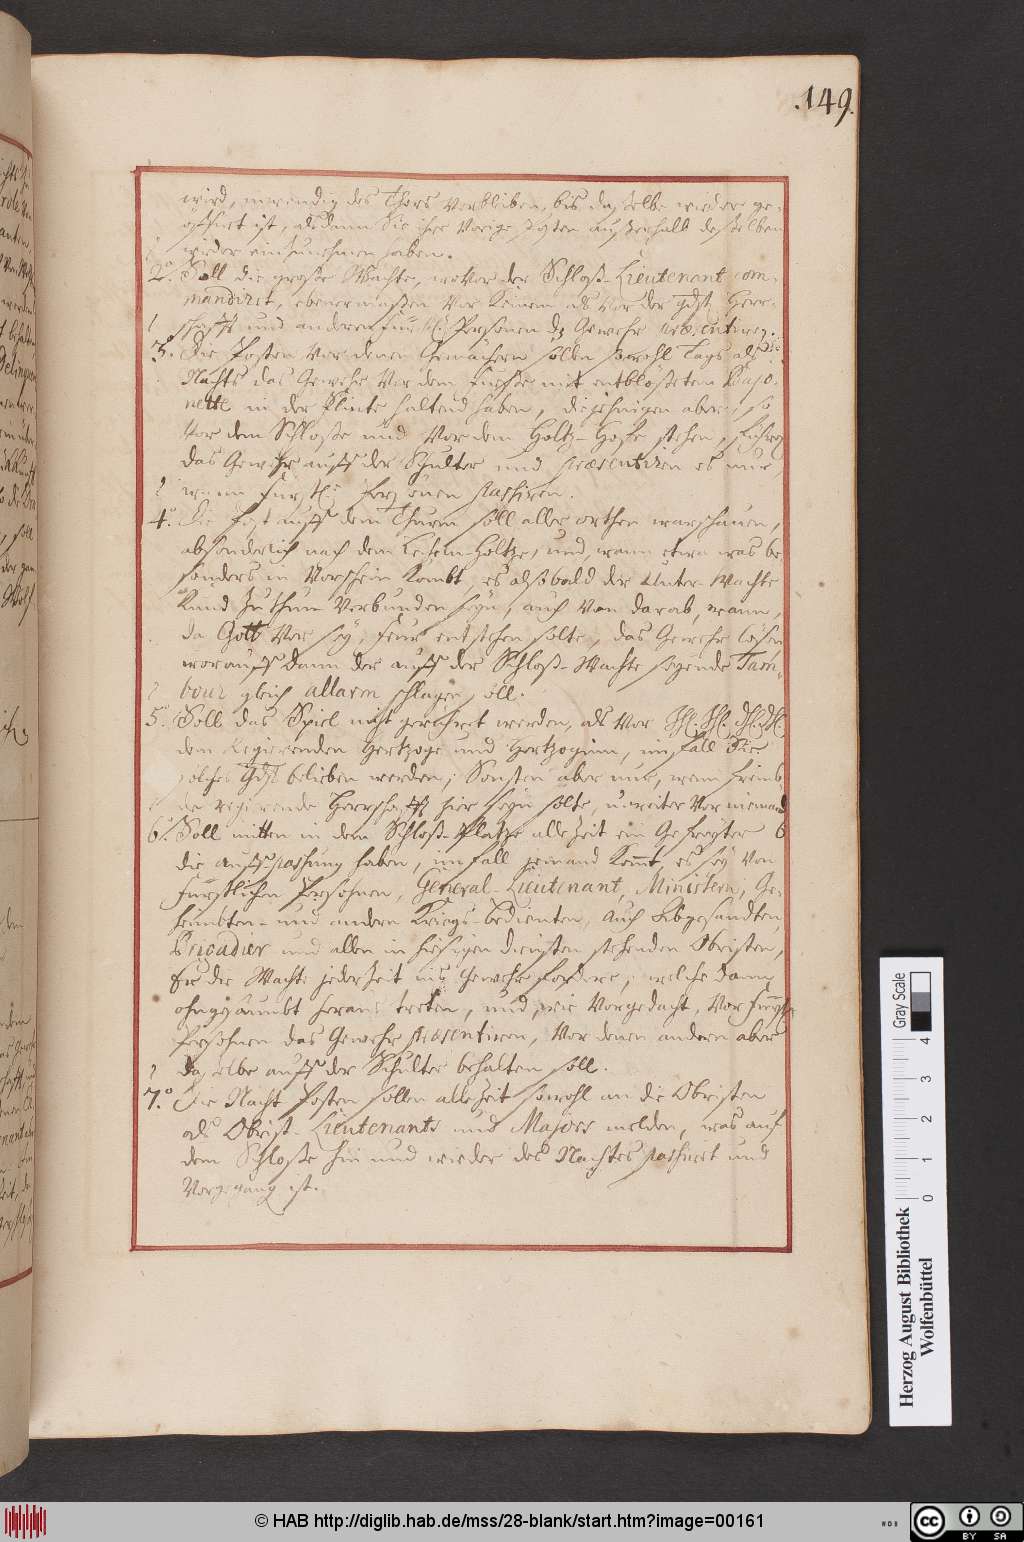 .149.
wird, inwendig des Thors verbleiben, bis dasselbe wieder ge-
öffnet ist, alsdann Sie ihre vorige Posten ausserhalb desselben
wieder einzunehmen haben.
2.° Soll die grosse Wachte, wovor der Schloß-Lieutenant com-
mandiret, ebenermaßen vor keinem als vor der Gdst. Herr-
schafft und anderen Fürstl. Personen dz Gewehr
3.° Die Posten vor denen Gemächern sollen sowohl Tags als
Nachts das Gewehr vor dem Fuesse mit entblößetem Bajo-
nette in der Flinte haltend haben, diejenigen aber, so
vor dem Schlosse und vor dem Holtz-Hofe stehen, führen
das Gewehr auff der Schulter und præsentiren es nur,
wann Fürstl. Personen passiren.
4.° Die Post auff dem Thurm soll aller orthen warschauen,
absonderlich nach dem Holtze, und wann etwa was be-
sonders in Vorschein kombt, es alßbald der Unter-Wachte
kund zu thun verbunden seyn, auch von darab, wann,
da Gott vor sey, Feur entstehen solte, das Gewehr lösen
worauff dann der auff der Schloß-Wachte seyende Tam-
bour gleich allarm schlagen soll.
5.° Soll das Spiel nicht gerühret werden, als vor
dem Regierenden Hertzoge und Hertzoginn, im fall Sie
solches Gdst. belieben werden; Sonsten aber nur, wenn fremb-
de regierende Herrschafft hier seyn solte, vor niemand
6.° Soll mitten in dem Schloß-Platze alle Zeit ein Gefreyter
die auffpassung haben, im fall jemand kommt, es sey von
Fürstlichen Persohnen, General-Lieutenant, Ministern, Ge-
heimbten- und andern Kriegs-bedienten, auch Abgesandten,
Brigadier und allen in hiesigen diensten stehenden Obristen,
Er die Wachte jederzeit ins Gewehr fordere, welche dann
ohngesäumbt heraus treten, und, wie vorgedacht, vor Fürstl.
Persohnen das Gewehr præsentiren, vor denen andern aber
dasselbe auff der Schulter behalten soll.
7.° Die Nacht Posten sollen allezeit sowohl an die Obristen
als Obrist-Lieutenants und Majors melden, was auf
dem Schlosse hin und wieder des Nachtes passiret und
vorgegang ist.
Gray Scale
0 1 2 3 4
Herzog August Bibliothek
Wolfenbüttel
© HAB http://diglib.hab.de/mss/28-blank/start.htm?image=00161
WDB
CC BY SA